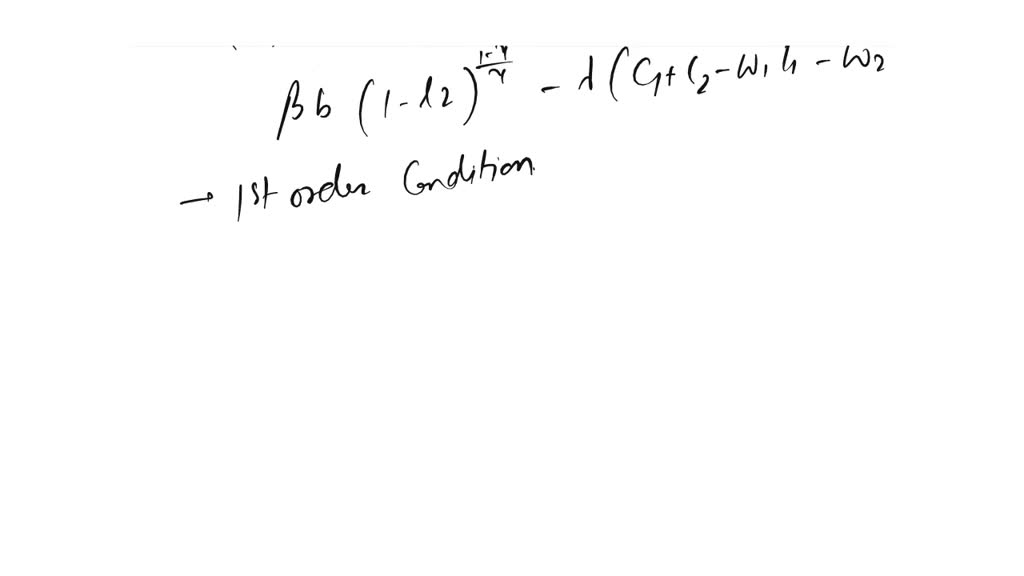 βb (1-l2)^{\frac{1-γ}{γ}} - λ(C1+C2-W1l1-W2
→ 1st order Condition